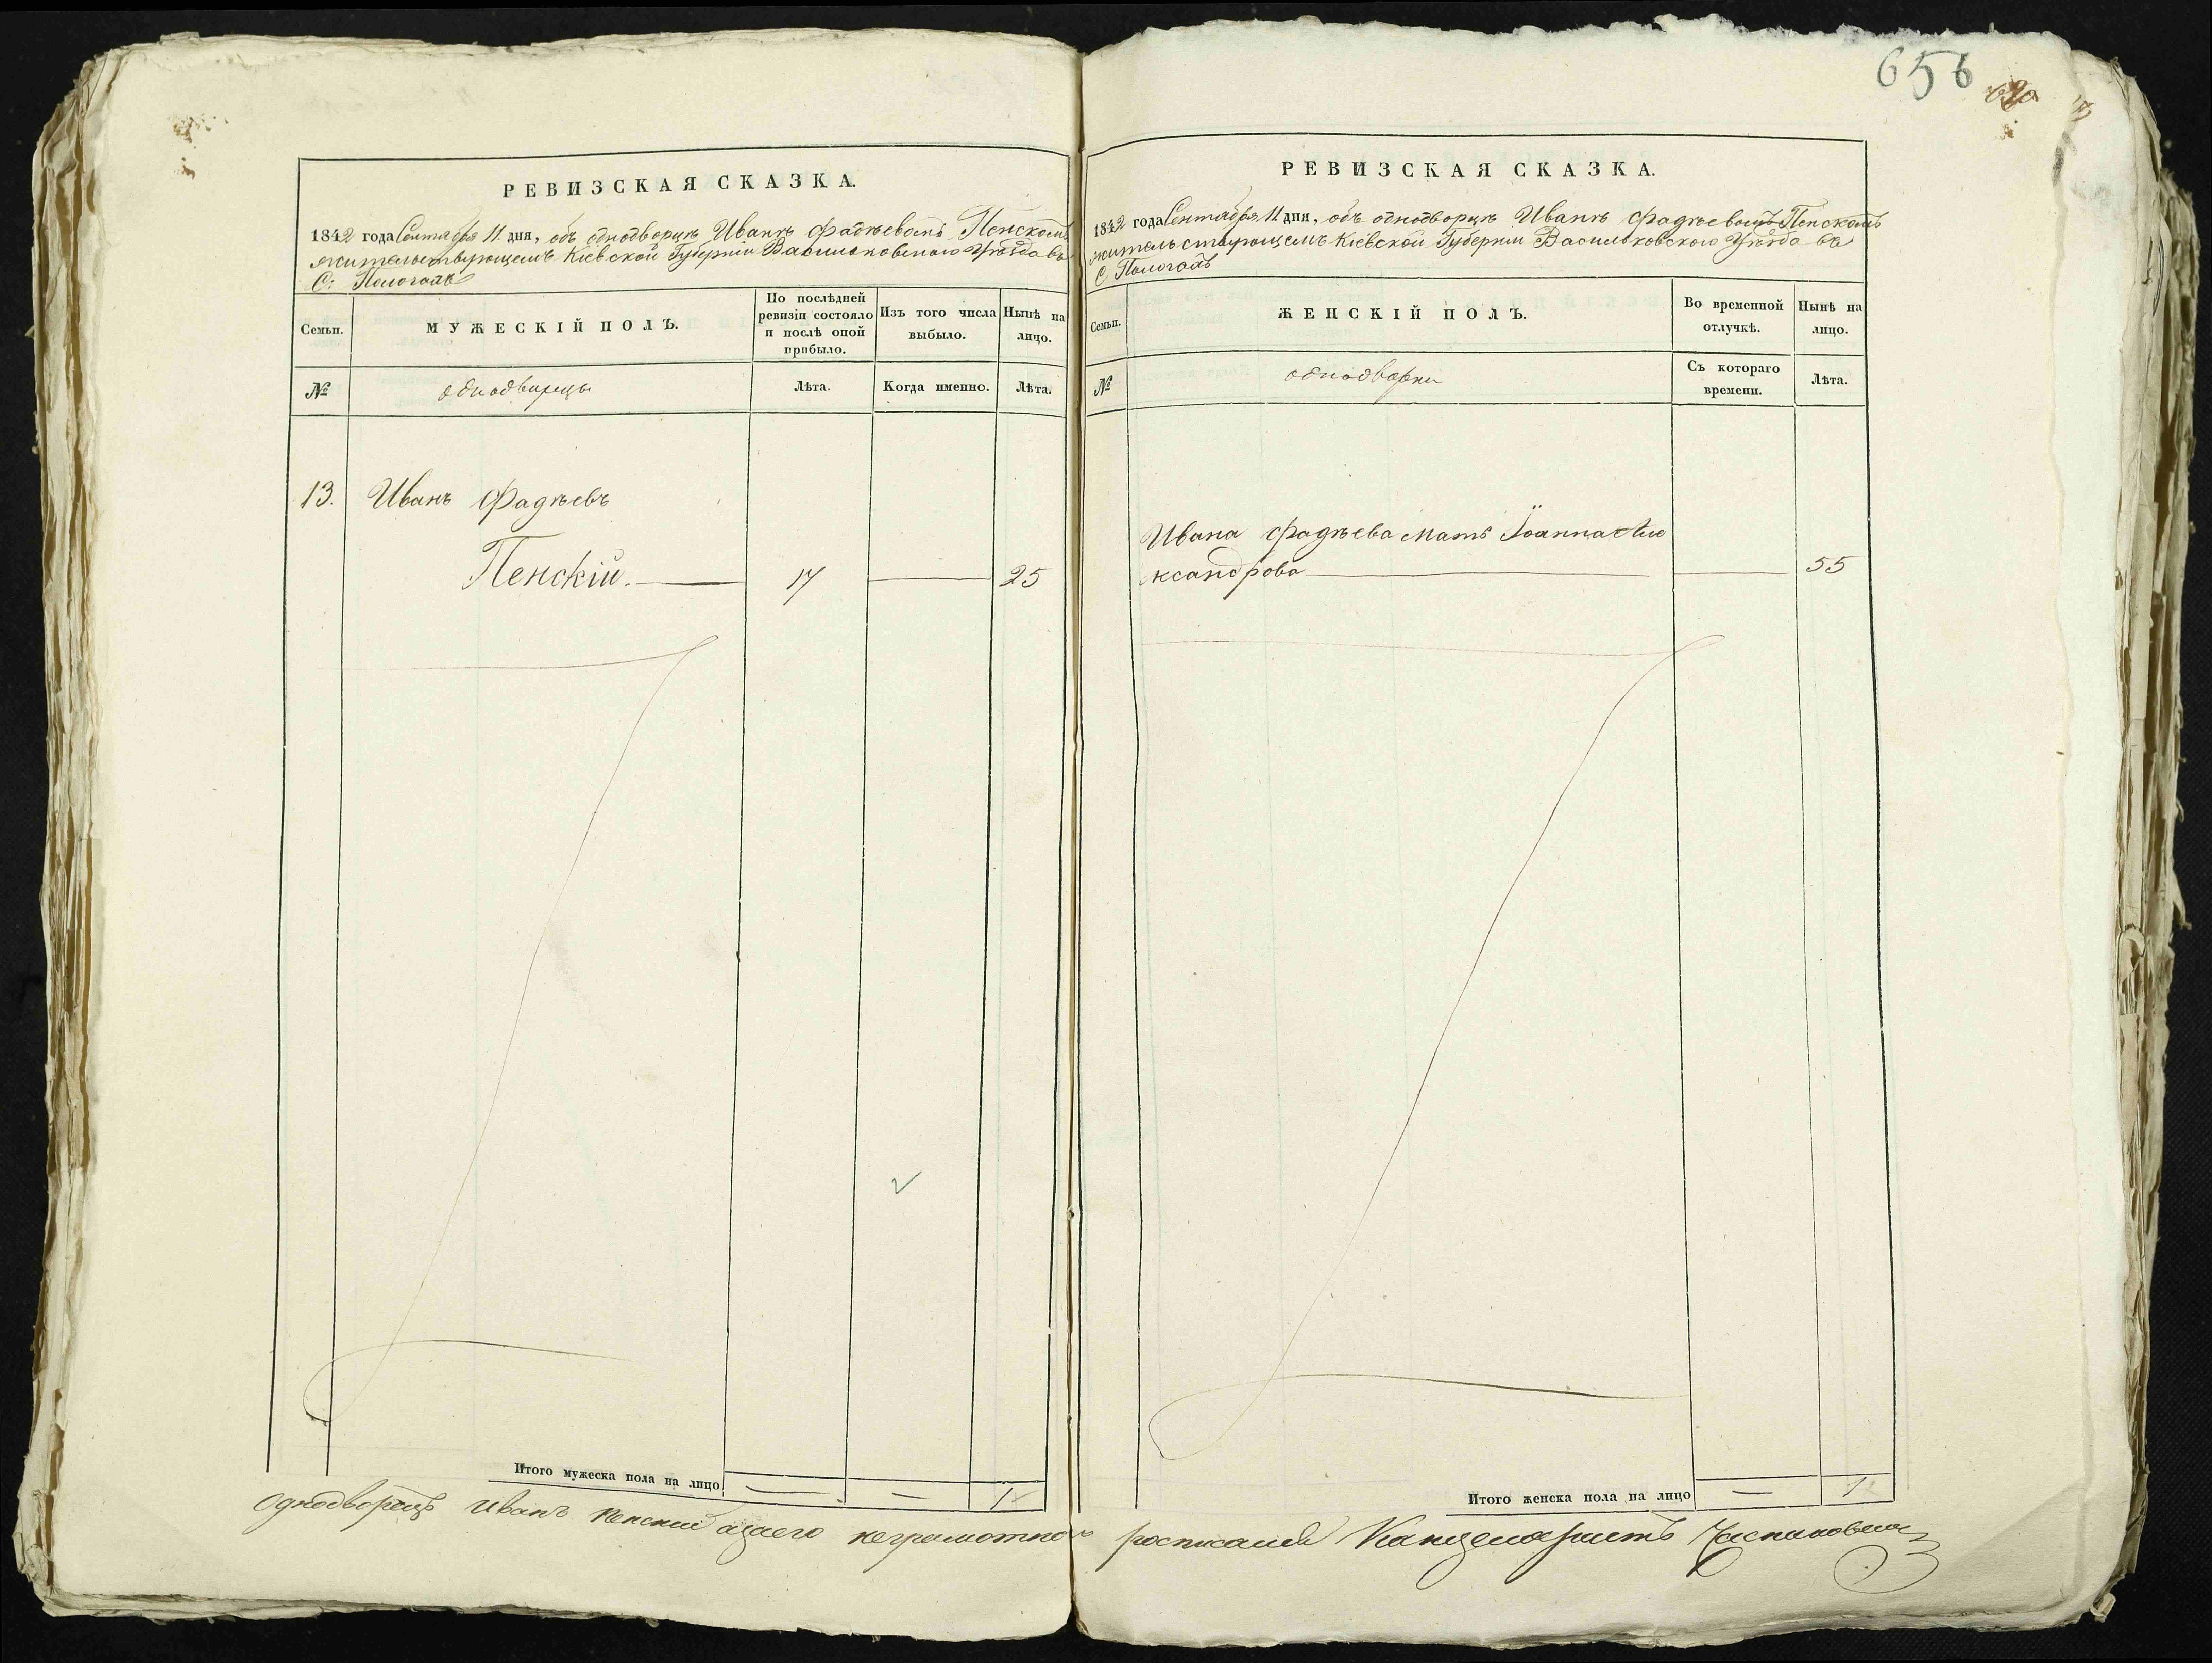 656
РЕВИЗСКАЯ СКАЗКА.
1842 года Сентября 11 дня, объ однодворцѣ Иванѣ Фадѣевомъ Пенскомъ
жительствующемъ Кіевской Губерніи Васильковскаго Уѣзда въ
С: Пологахъ
Семьи.
МУЖЕСКІЙ ПОЛЪ.
По послѣдней
ревизіи состояло
и послѣ оной
прибыло.
Изъ того числа
выбыло.
Нынѣ на
лицо.
№
однодворцы
Лѣта.
Когда именно.
Лѣта.
13. Иванъ Фадѣевъ
Пенскій. 17 25
Итого мужеска пола на лицо — — 1
РЕВИЗСКАЯ СКАЗКА.
1842 года Сентября 11 дня, объ однодворцѣ Иванѣ Фадѣевомъ Пенскомъ
жительствующемъ Кіевской Губерніи Васильковскаго Уѣзда въ
С Пологахъ
Семьи.
ЖЕНСКІЙ ПОЛЪ.
Во временной
отлучкѣ.
Нынѣ на
лицо.
№
однодворки
Съ котораго
времени.
Лѣта.
Ивана Фадѣева мать Іоанна Але
ксандрова 55
Итого женска пола на лицо — 1
Однодворецъ Иванъ Пенскій а заего неграмотного росписался Канцеляристъ